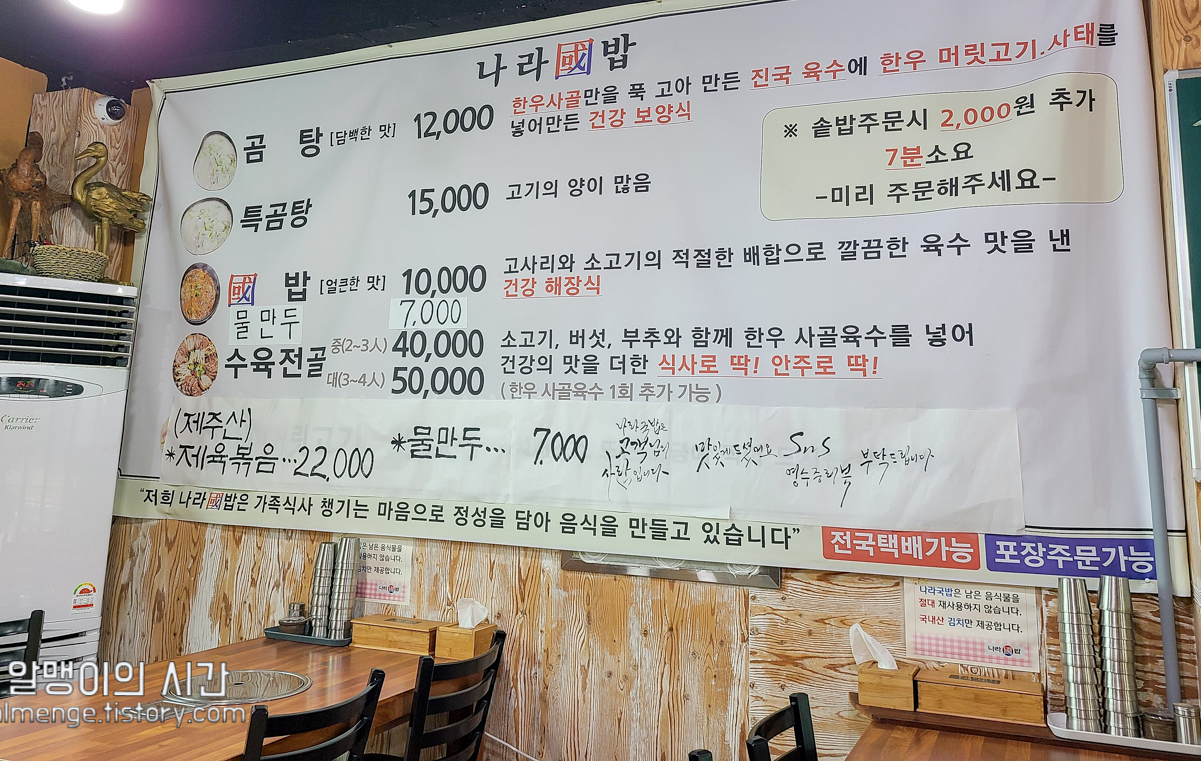 나라國밥
곰 탕 [담백한 맛] 12,000 한우사골만을 푹 고아 만든 진국 육수에 한우 머릿고기.사태를
넣어만든 건강 보양식
※ 솥밥주문시 2,000원 추가
7분소요
-미리 주문해주세요-
특곰탕 15,000 고기의 양이 많음
國 밥 [얼큰한 맛] 10,000 고사리와 소고기의 적절한 배합으로 깔끔한 육수 맛을 낸
건강 해장식
물만두 7,000
수육전골 중(2~3人) 40,000 소고기, 버섯, 부추와 함께 한우 사골육수를 넣어
건강의 맛을 더한 식사로 딱! 안주로 딱!
대(3~4人) 50,000 (한우 사골육수 1회 추가 가능)
(제주산)
*제육볶음...22,000
*물만두... 7,000
나라국밥은
고객님의
사랑입니다
맛있게 드셨어요 SnS
영수증리뷰 부탁드립니다
"저희 나라國밥은 가족식사 챙기는 마음으로 정성을 담아 음식을 만들고 있습니다"
전국택배가능 포장주문가능
은 남은 음식물을
사용하지 않습니다.
김치만 제공합니다.
나라國밥
나라국밥은 남은 음식물을
절대 재사용하지 않습니다.
국내산 김치만 제공합니다.
나라國밥
Carrier
Klarwind
알맹이의 시간
almenge.tistory.com